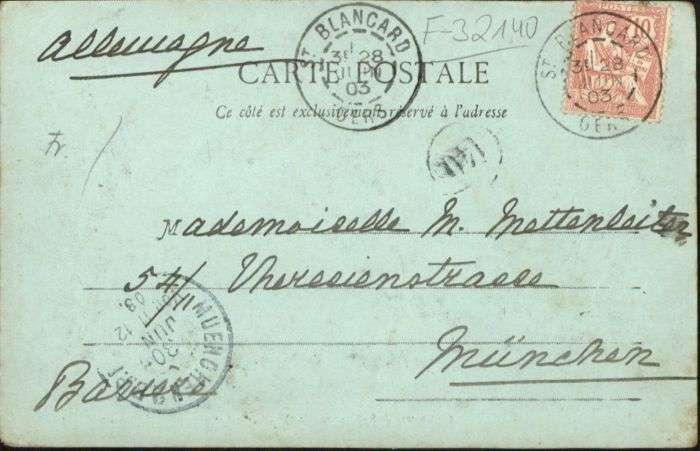 Allemagne
F-32140
ST BLANCARD
1
3E 28
JUIN
03
GERS
10
ST BLANCARD
3E 28
JUIN
03
GERS
CARTE POSTALE
Ce côté est exclusivement réservé à l'adresse
fr.
Mademoiselle M. Mettenleiter
54/II Theresienstrasse
MUENCHEN
30
JUN
03.
München